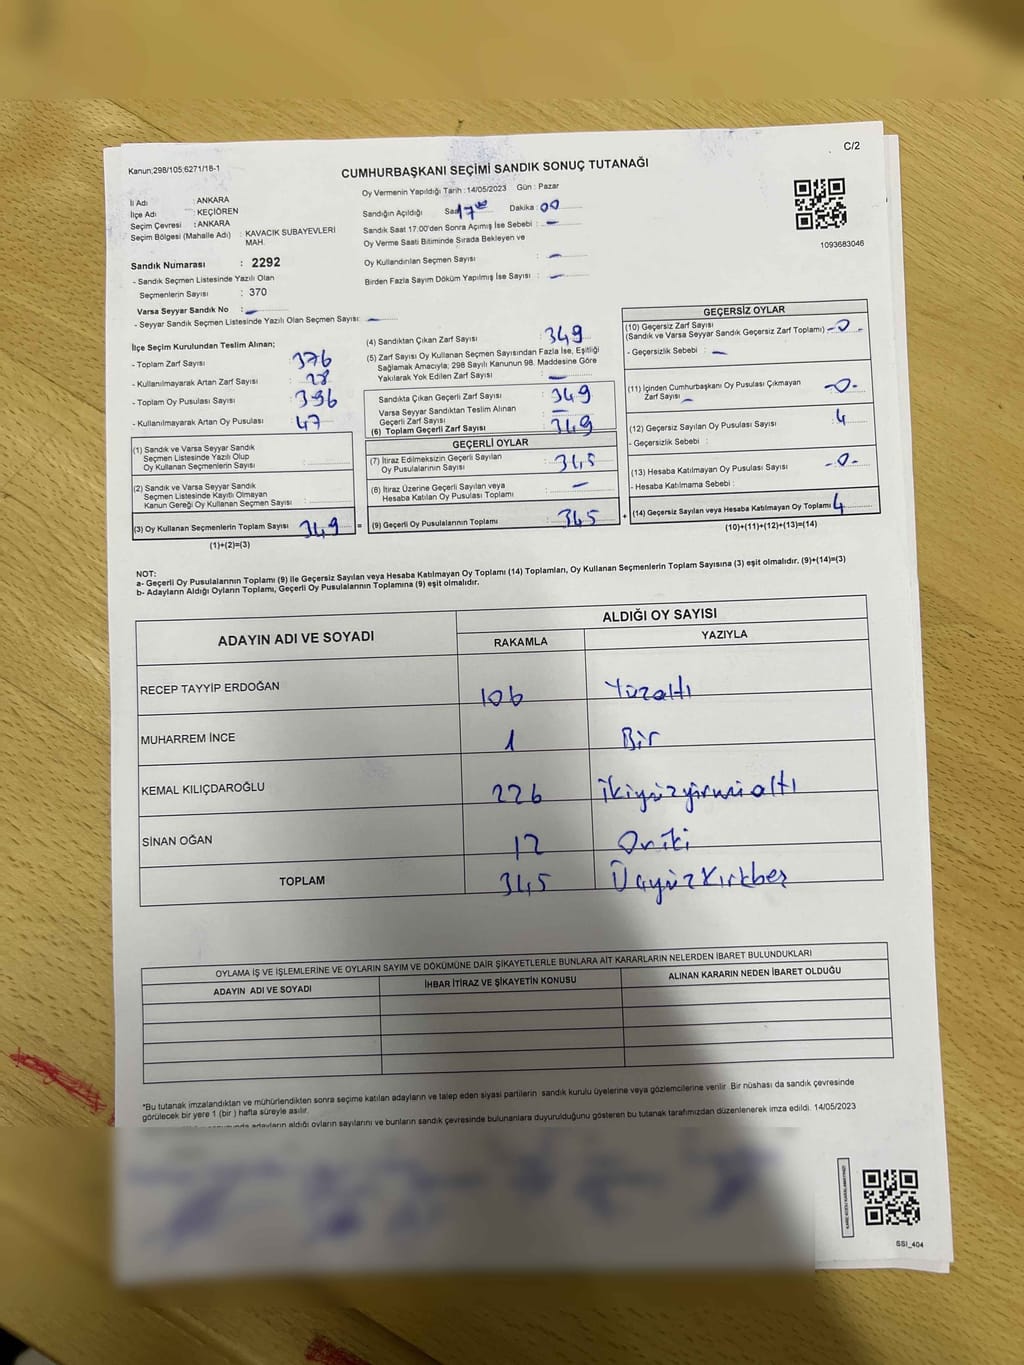 C/2
Kanun:298/105;6271/18-1
CUMHURBAŞKANI SEÇİMİ SANDIK SONUÇ TUTANAĞI
İli Adı : ANKARA
İlçe Adı : KEÇİÖREN
Seçim Çevresi : ANKARA
Seçim Bölgesi (Mahalle Adı) : KAVACIK SUBAYEVLERİ
MAH.
Sandık Numarası : 2292
- Sandık Seçmen Listesinde Yazılı Olan
Seçmenlerin Sayısı : 370
Varsa Seyyar Sandık No : -
- Seyyar Sandık Seçmen Listesinde Yazılı Olan Seçmen Sayısı: -
Oy Vermenin Yapıldığı Tarih :14/05/2023 Gün : Pazar
Sandığın Açıldığı Saat 17 00 Dakika : 00
Sandık Saat 17.00'den Sonra Açımış İse Sebebi : -
Oy Verme Saati Bitiminde Sırada Bekleyen ve
Oy Kullandırılan Seçmen Sayısı : -
Birden Fazla Sayım Döküm Yapılmış İse Sayısı : -
1093683046
İlçe Seçim Kurulundan Teslim Alınan;
- Toplam Zarf Sayısı : 376
- Kullanılmayarak Artan Zarf Sayısı : 28
- Toplam Oy Pusulası Sayısı : 396
- Kullanılmayarak Artan Oy Pusulası : 47
(1) Sandık ve Varsa Seyyar Sandık
Seçmen Listesinde Yazılı Olup
Oy Kullanan Seçmenlerin Sayısı :
(2) Sandık ve Varsa Seyyar Sandık
Seçmen Listesinde Kayıtlı Olmayan
Kanun Gereği Oy Kullanan Seçmen Sayısı :
(3) Oy Kullanan Seçmenlerin Toplam Sayısı : 349
(1)+(2)=(3)
(4) Sandıktan Çıkan Zarf Sayısı : 349
(5) Zarf Sayısı Oy Kullanan Seçmen Sayısından Fazla İse, Eşitliği
Sağlamak Amacıyla; 298 Sayılı Kanunun 98. Maddesine Göre
Yakılarak Yok Edilen Zarf Sayısı : -
Sandıkta Çıkan Geçerli Zarf Sayısı : 349
Varsa Seyyar Sandıktan Teslim Alınan
Geçerli Zarf Sayısı : -
(6) Toplam Geçerli Zarf Sayısı : 349
GEÇERLİ OYLAR
(7) İtiraz Edilmeksizin Geçerli Sayılan
Oy Pusulalarının Sayısı : 345
(8) İtiraz Üzerine Geçerli Sayılan veya
Hesaba Katılan Oy Pusulası Toplamı : -
= (9) Geçerli Oy Pusulalarının Toplamı : 345
GEÇERSİZ OYLAR
(10) Geçersiz Zarf Sayısı
(Sandık ve Varsa Seyyar Sandık Geçersiz Zarf Toplamı) -0-
- Geçersizlik Sebebi : -
(11) İçinden Cumhurbaşkanı Oy Pusulası Çıkmayan
Zarf Sayısı -0-
(12) Geçersiz Sayılan Oy Pusulası Sayısı : 4
- Geçersizlik Sebebi :
(13) Hesaba Katılmayan Oy Pusulası Sayısı -0-
- Hesaba Katılmama Sebebi :
+ (14) Geçersiz Sayılan veya Hesaba Katılmayan Oy Toplamı 4
(10)+(11)+(12)+(13)=(14)
NOT:
a- Geçerli Oy Pusulalarının Toplamı (9) ile Geçersiz Sayılan veya Hesaba Katılmayan Oy Toplamı (14) Toplamları, Oy Kullanan Seçmenlerin Toplam Sayısına (3) eşit olmalıdır. (9)+(14)=(3)
b- Adayların Aldığı Oyların Toplamı, Geçerli Oy Pusulalarının Toplamına (9) eşit olmalıdır.
ADAYIN ADI VE SOYADI
ALDIĞI OY SAYISI
RAKAMLA YAZIYLA
RECEP TAYYİP ERDOĞAN 106 Yüzaltı
MUHARREM İNCE 1 Bir
KEMAL KILIÇDAROĞLU 226 İkiyüzyirmialtı
SİNAN OĞAN 12 Oniki
TOPLAM 345 Üçyüzkırkbeş
OYLAMA İŞ VE İŞLEMLERİNE VE OYLARIN SAYIM VE DÖKÜMÜNE DAİR ŞİKAYETLERLE BUNLARA AİT KARARLARIN NELERDEN İBARET BULUNDUKLARI
ADAYIN ADI VE SOYADI İHBAR İTİRAZ VE ŞİKAYETİN KONUSU ALINAN KARARIN NEDEN İBARET OLDUĞU
*Bu tutanak imzalandıktan ve mühürlendikten sonra seçime katılan adayların ve talep eden siyasi partilerin sandık kurulu üyelerine veya gözlemcilerine verilir Bir nüshası da sandık çevresinde
görülecek bir yere 1 (bir ) hafta süreyle asılır.
adayların aldığı oyların sayılarını ve bunların sandık çevresinde bulunanlara duyurulduğunu gösteren bu tutanak tarafımızdan düzenlenerek imza edildi. 14/05/2023
SSİ_404